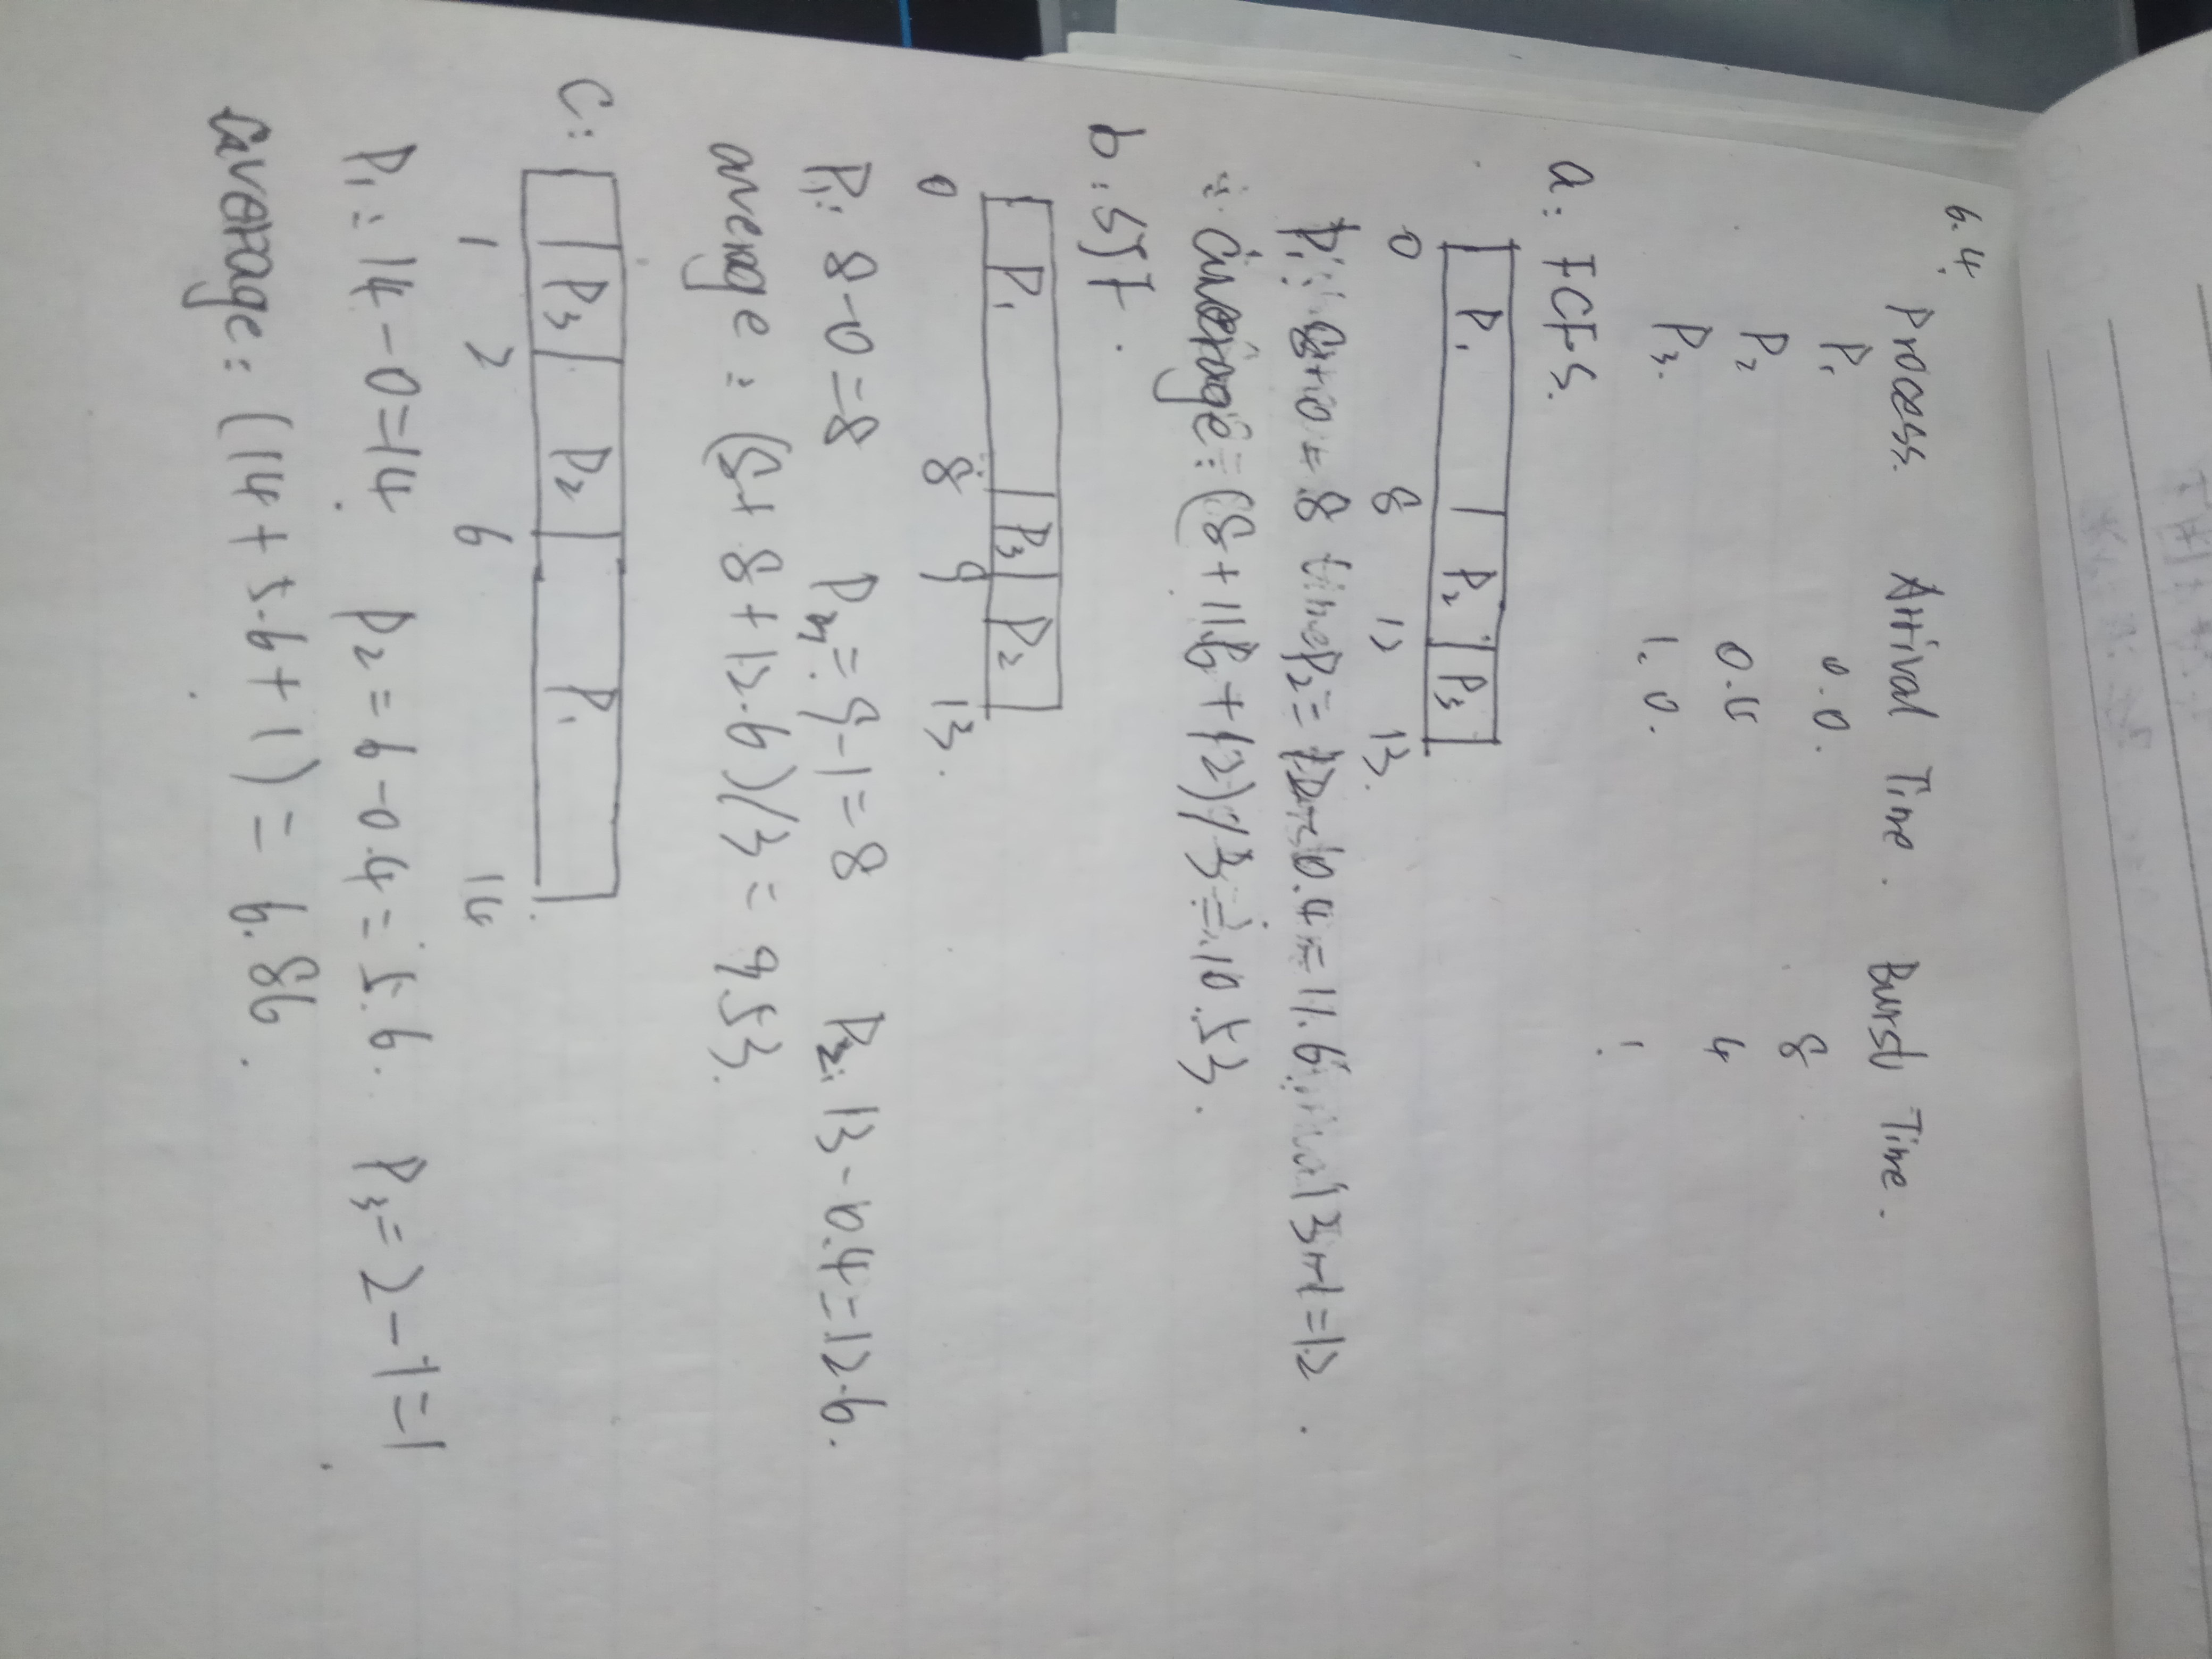 6.4.
Process. Arrival Time. Burst Time.
P1 0.0. 8
P2 0.4 4
P3. 1.0. 1
a: FCFS.
P1 P2 P3
0 8 12 13.
P1: 8-0=8 P2=12-0.4=11.6 13-1=12.
average: (8+11.6+12)/3=10.53.
b: SJF.
P1 P3 P2
0 8 9 13.
P1: 8-0=8 P3=9-1=8 P2: 13-0.4=12.6.
average: (8+8+12.6)/3=9.53.
C: P3 P2 P1
1 2 6 14
P1: 14-0=14. P2=6-0.4=5.6. P3=2-1=1
average: (14+5.6+1)=6.86.